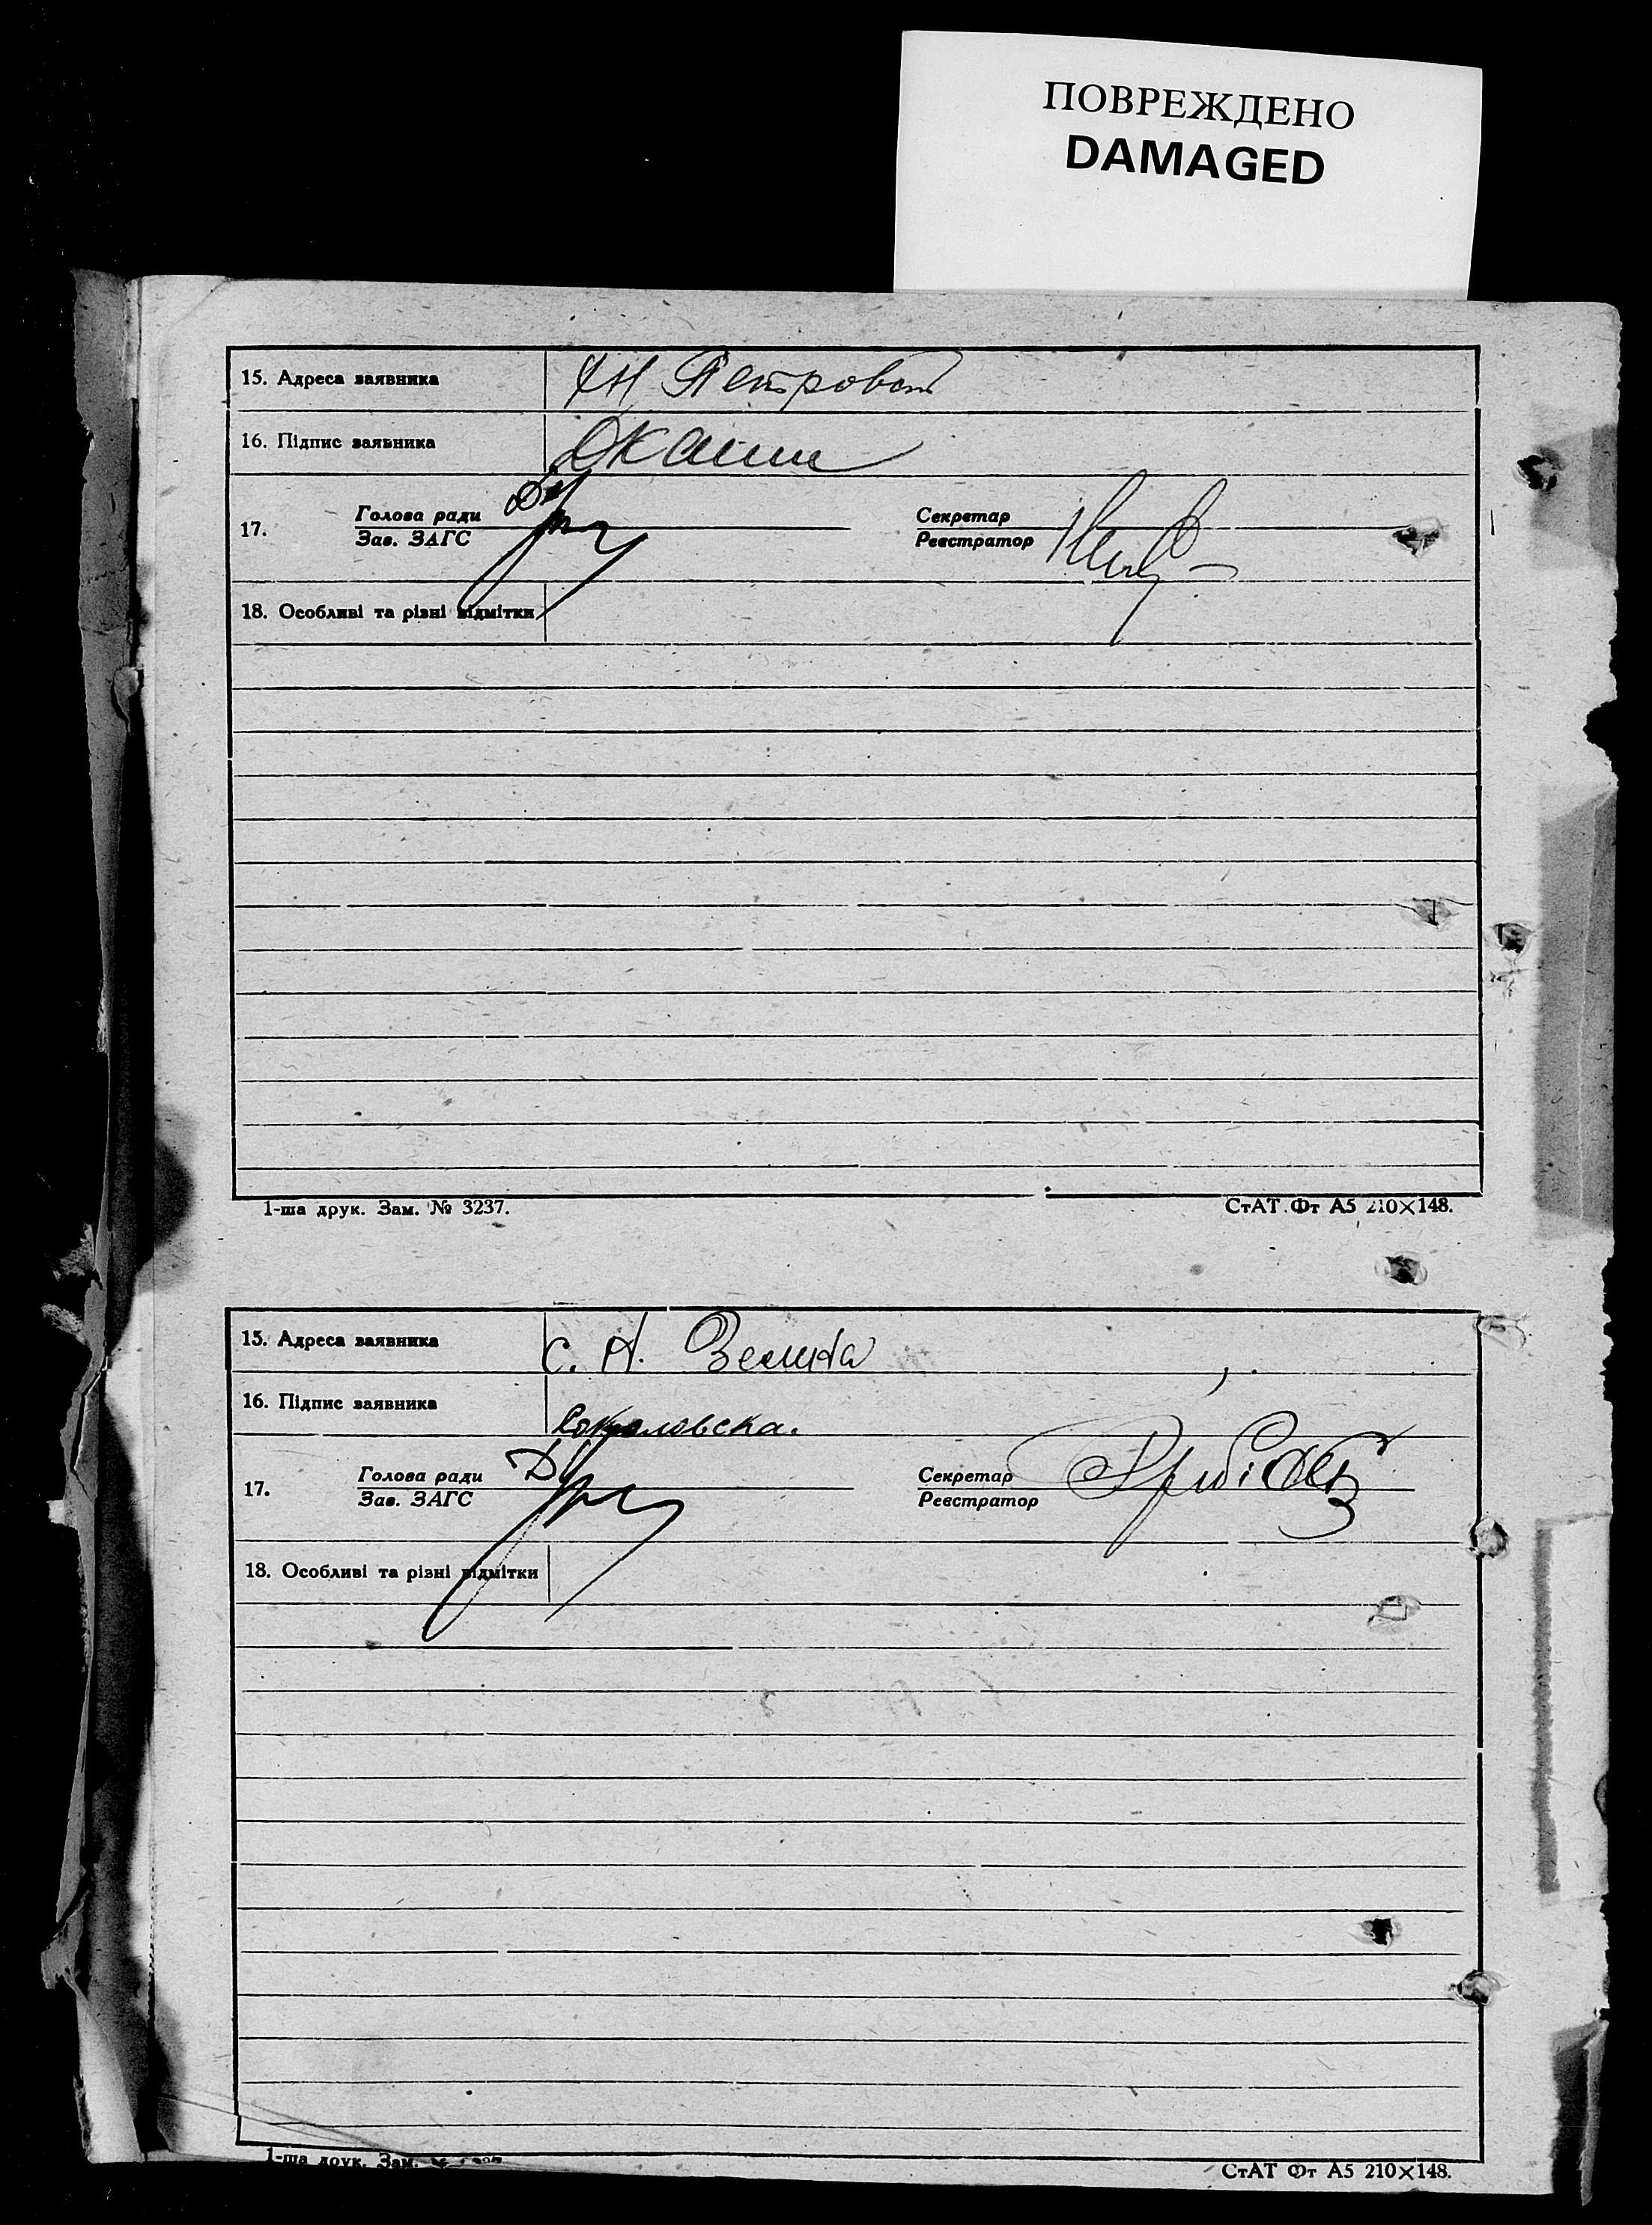 ПОВРЕЖДЕНО
DAMAGED
15. Адреса заявника
16. Підпис заявника
17. Голова ради Секретар
Зав. ЗАГС Реєстратор
18. Особливі та різні відмітки
1-ша друк. Зам. № 3237. СтАТ Фт А5 210×148.
15. Адреса заявника с. Н.
16. Підпис заявника Соколовска.
17. Голова ради Секретар
Зав. ЗАГС Реєстратор
18. Особливі та різні відмітки
1-ша друк. Зам. СтАТ Фт А5 210×148.